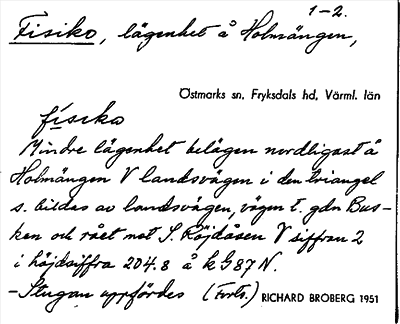 1-2.
Fisiko, lägenhet å Holmängen,
Östmarks sn, Fryksdals hd, Värml. län
físiko
Mindre lägenhet belägen nordligast å
Holmängen V landsvägen i den triangel
s. bildas av landsvägen, vägen t. gdn Bus-
ken och rået mot S. Röjdåsen V siffran 2
i höjdsiffra 204.8 å kG87N.
-Stugan uppfördes (Forts.) RICHARD BROBERG 1951